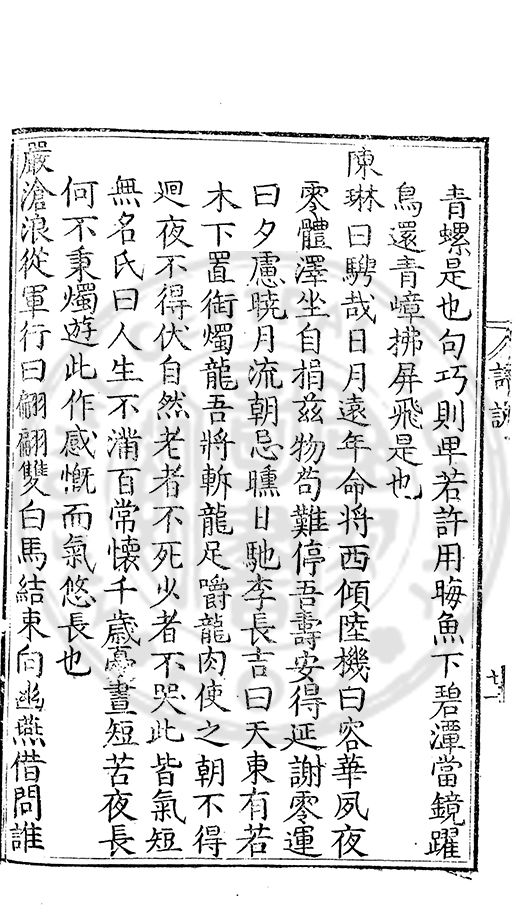 青螺是也句巧則卑若許用晦魚下碧潭當鏡躍
鳥還青嶂拂屏飛是也
陳琳曰騁哉日月遠年命將西傾陸機曰容華夙夜
零體澤坐自捐茲物苟難停吾壽安得延謝零運
曰夕慮曉月流朝忌曛日馳李長吉曰天東有若
木下置衘燭龍吾將斬龍足嚼龍肉使之朝不得
迴夜不得伏自然老者不死少者不哭此皆氣短
無名氏曰人生不滿百常懷千歲憂晝短苦夜長
何不秉燭遊此作感慨而氣悠長也
嚴滄浪從軍行曰翩翩雙白馬結束向幽燕借問誰